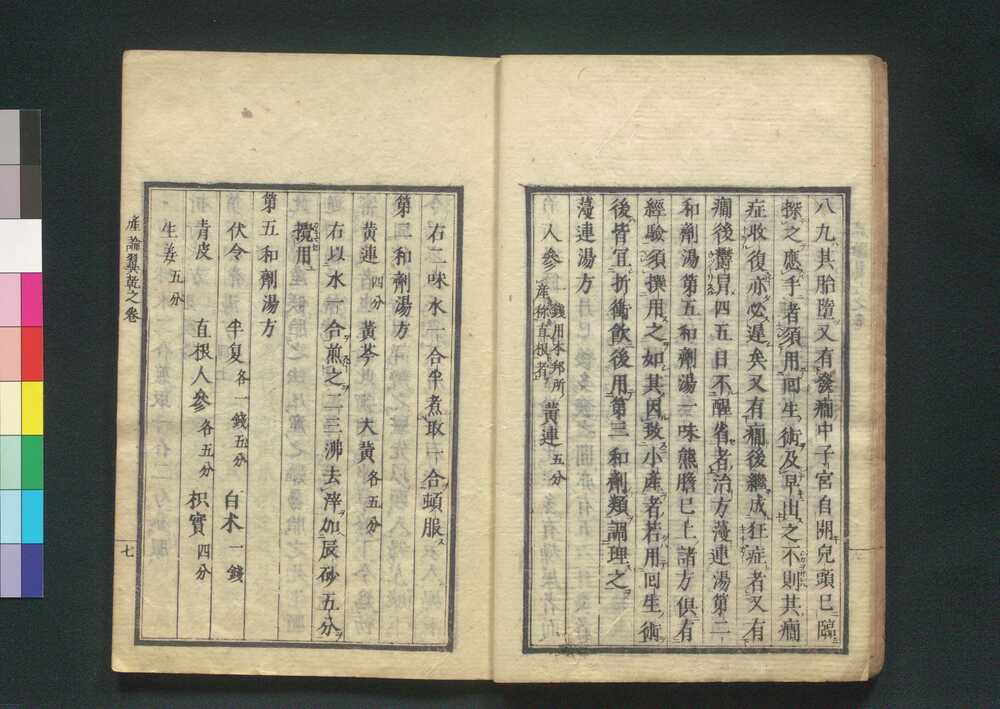 八九其胎墮又有發癇中子宮自開兒頭已臨
探之應手者須用回生術及早出之不則其癇
症收復亦必遲矣又有癇後繼成狂症者又有
癇後鬱冒四五日不醒省者治方薓連湯第二
和劑湯第五和劑湯一味熊膽已上諸方俱有
經驗須撰用之如其因致小產者若用回生術
後皆宜折衝飲後用第三和劑類調理之
薓連湯方
人參 一錢用本邦所產称直根者 黃連 五分
右二味水一合半煮取一合頓服
第二和劑湯方
黃連 四分 黃芩 大黃 各五分
右以水一合煎之二三沸去滓加辰砂五分
攪用
第五和劑湯方
伏令 半夏 各一錢五分 白朮 一錢
青皮 直根人參 各五分 枳實 四分
生姜 五分
產論翼乾之卷
七